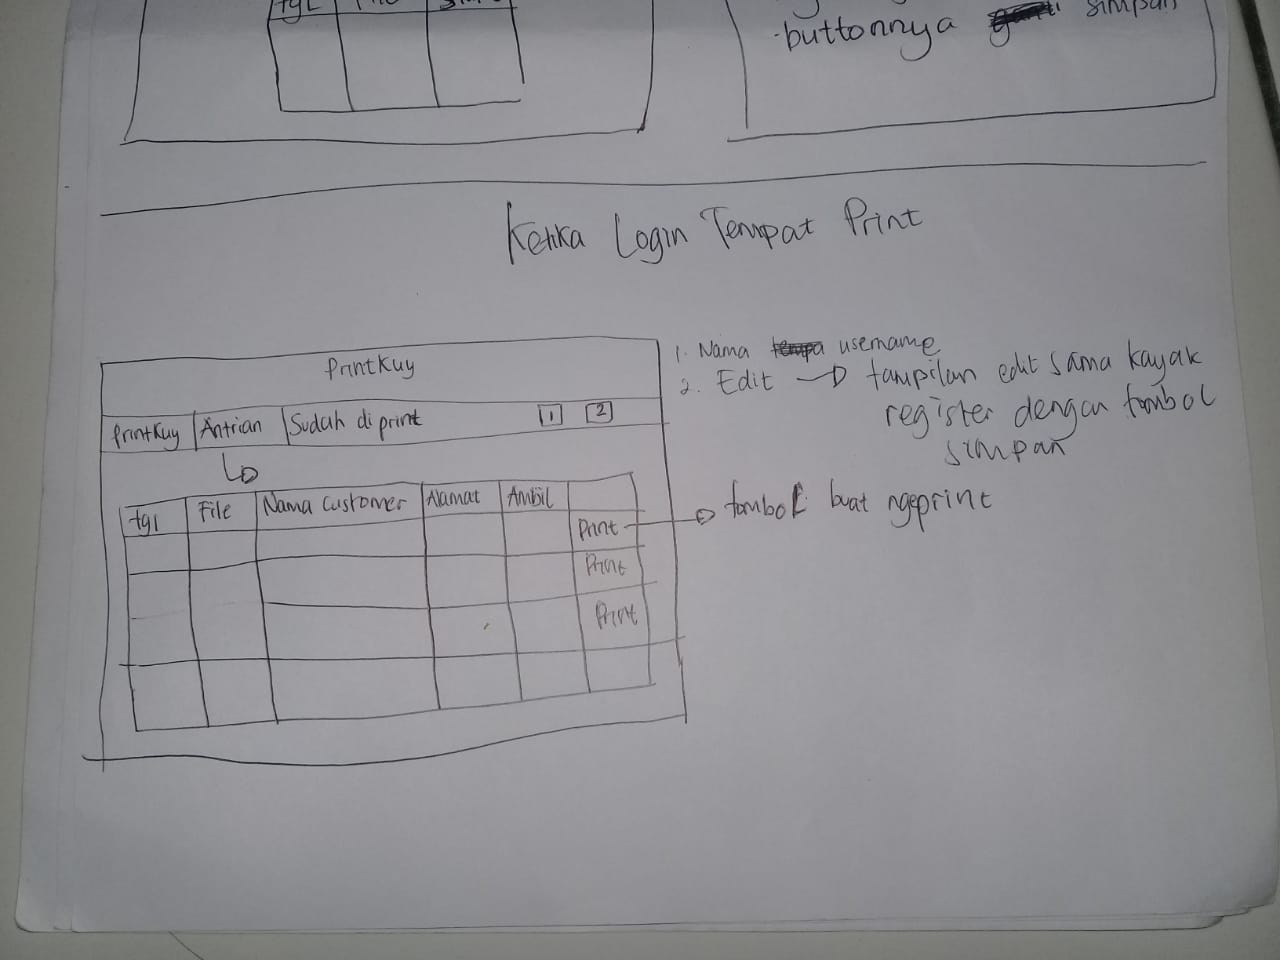 tgl File
buttonnya simpan
Ketika Login Tempat Print
PrintKuy
PrintKuy Antrian Sudah di print 1 2
tgl File Nama Customer Alamat Ambil
Print
Print
Print
1. Nama username
2. Edit → tampilan edit sama kayak
register dengan tombol
simpan
tombol buat ngeprint